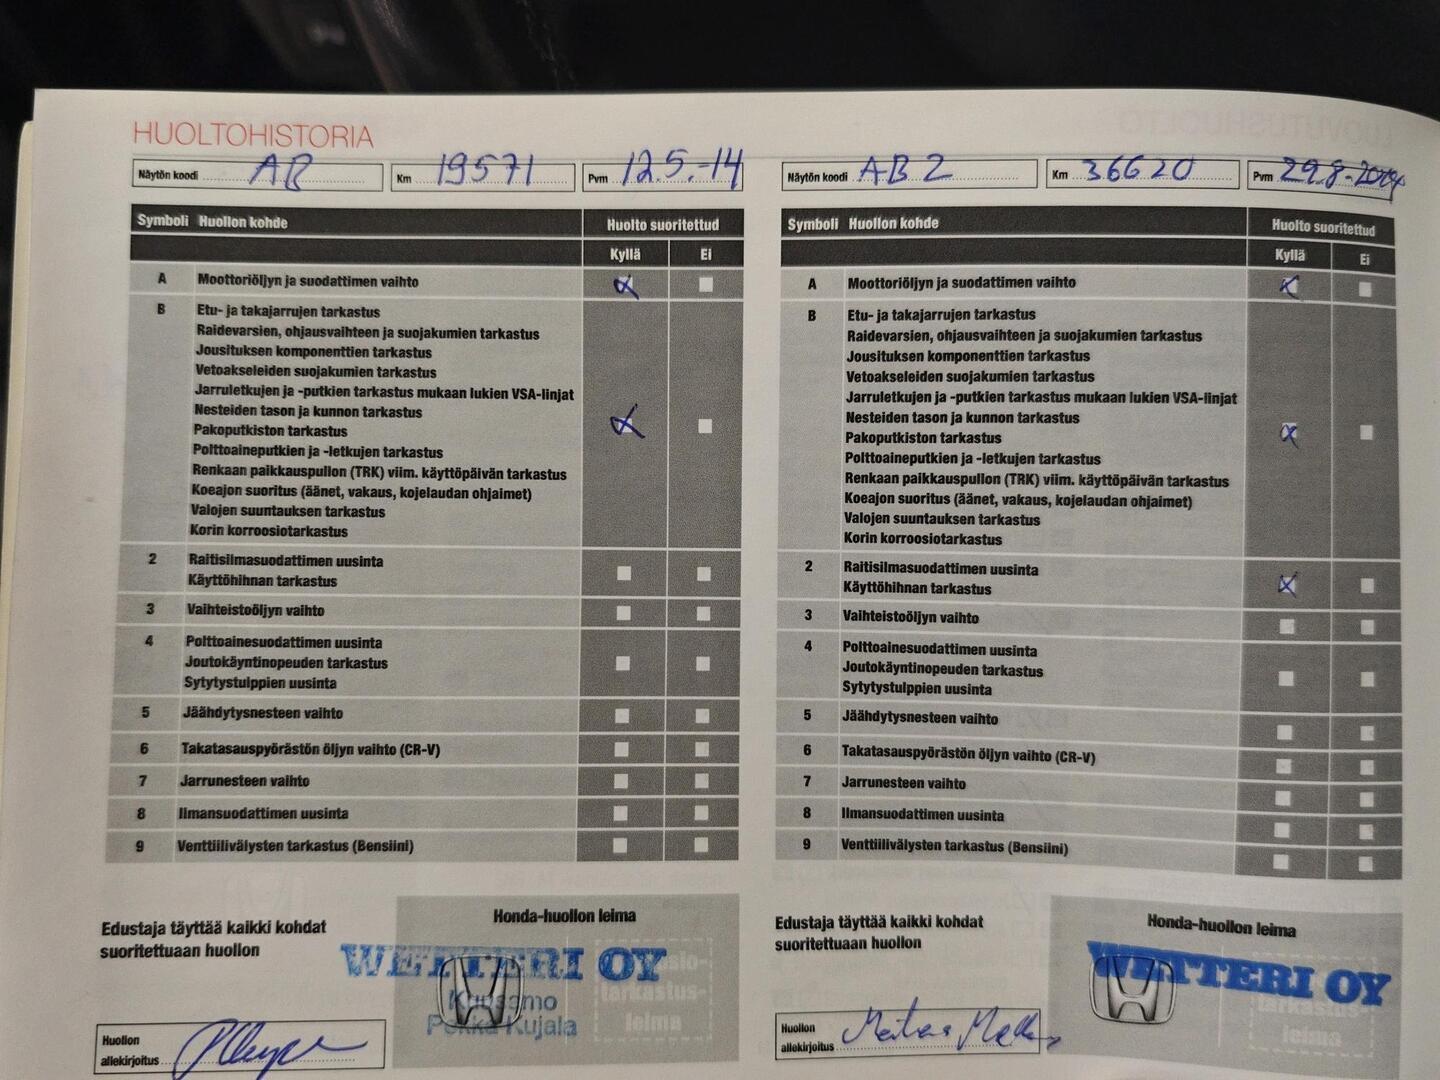 HUOLTOHISTORIA
Näytön koodi AB Km 19571 Pvm 12.5.-14
Symboli Huollon kohde Huolto suoritettud
Kyllä Ei
A Moottoriöljyn ja suodattimen vaihto
B Etu- ja takajarrujen tarkastus
Raidevarsien, ohjausvaihteen ja suojakumien tarkastus
Jousituksen komponenttien tarkastus
Vetoakseleiden suojakumien tarkastus
Jarruletkujen ja -putkien tarkastus mukaan lukien VSA-linjat
Nesteiden tason ja kunnon tarkastus
Pakoputkiston tarkastus
Polttoaineputkien ja -letkujen tarkastus
Renkaan paikkauspullon (TRK) viim. käyttöpäivän tarkastus
Koeajon suoritus (äänet, vakaus, kojelaudan ohjaimet)
Valojen suuntauksen tarkastus
Korin korroosiotarkastus
2 Raitisilmasuodattimen uusinta
Käyttöhihnan tarkastus
3 Vaihteistoöljyn vaihto
4 Polttoainesuodattimen uusinta
Joutokäyntinopeuden tarkastus
Sytytystulppien uusinta
5 Jäähdytysnesteen vaihto
6 Takatasauspyörästön öljyn vaihto (CR-V)
7 Jarrunesteen vaihto
8 Ilmansuodattimen uusinta
9 Venttiilivälysten tarkastus (Bensiini)
Edustaja täyttää kaikki kohdat
suoritettuaan huollon
Honda-huollon leima
WETTERI OY
Kuusamo
Pekka Kujala
tarkastus-
leima
Huollon
allekirjoitus
Näytön koodi AB 2 Km 36620 Pvm 29.8-2014
Symboli Huollon kohde Huolto suoritettud
Kyllä Ei
A Moottoriöljyn ja suodattimen vaihto
B Etu- ja takajarrujen tarkastus
Raidevarsien, ohjausvaihteen ja suojakumien tarkastus
Jousituksen komponenttien tarkastus
Vetoakseleiden suojakumien tarkastus
Jarruletkujen ja -putkien tarkastus mukaan lukien VSA-linjat
Nesteiden tason ja kunnon tarkastus
Pakoputkiston tarkastus
Polttoaineputkien ja -letkujen tarkastus
Renkaan paikkauspullon (TRK) viim. käyttöpäivän tarkastus
Koeajon suoritus (äänet, vakaus, kojelaudan ohjaimet)
Valojen suuntauksen tarkastus
Korin korroosiotarkastus
2 Raitisilmasuodattimen uusinta
Käyttöhihnan tarkastus
3 Vaihteistoöljyn vaihto
4 Polttoainesuodattimen uusinta
Joutokäyntinopeuden tarkastus
Sytytystulppien uusinta
5 Jäähdytysnesteen vaihto
6 Takatasauspyörästön öljyn vaihto (CR-V)
7 Jarrunesteen vaihto
8 Ilmansuodattimen uusinta
9 Venttiilivälysten tarkastus (Bensiini)
Edustaja täyttää kaikki kohdat
suoritettuaan huollon
Honda-huollon leima
WETTERI OY
tarkastus-
leima
Huollon
allekirjoitus